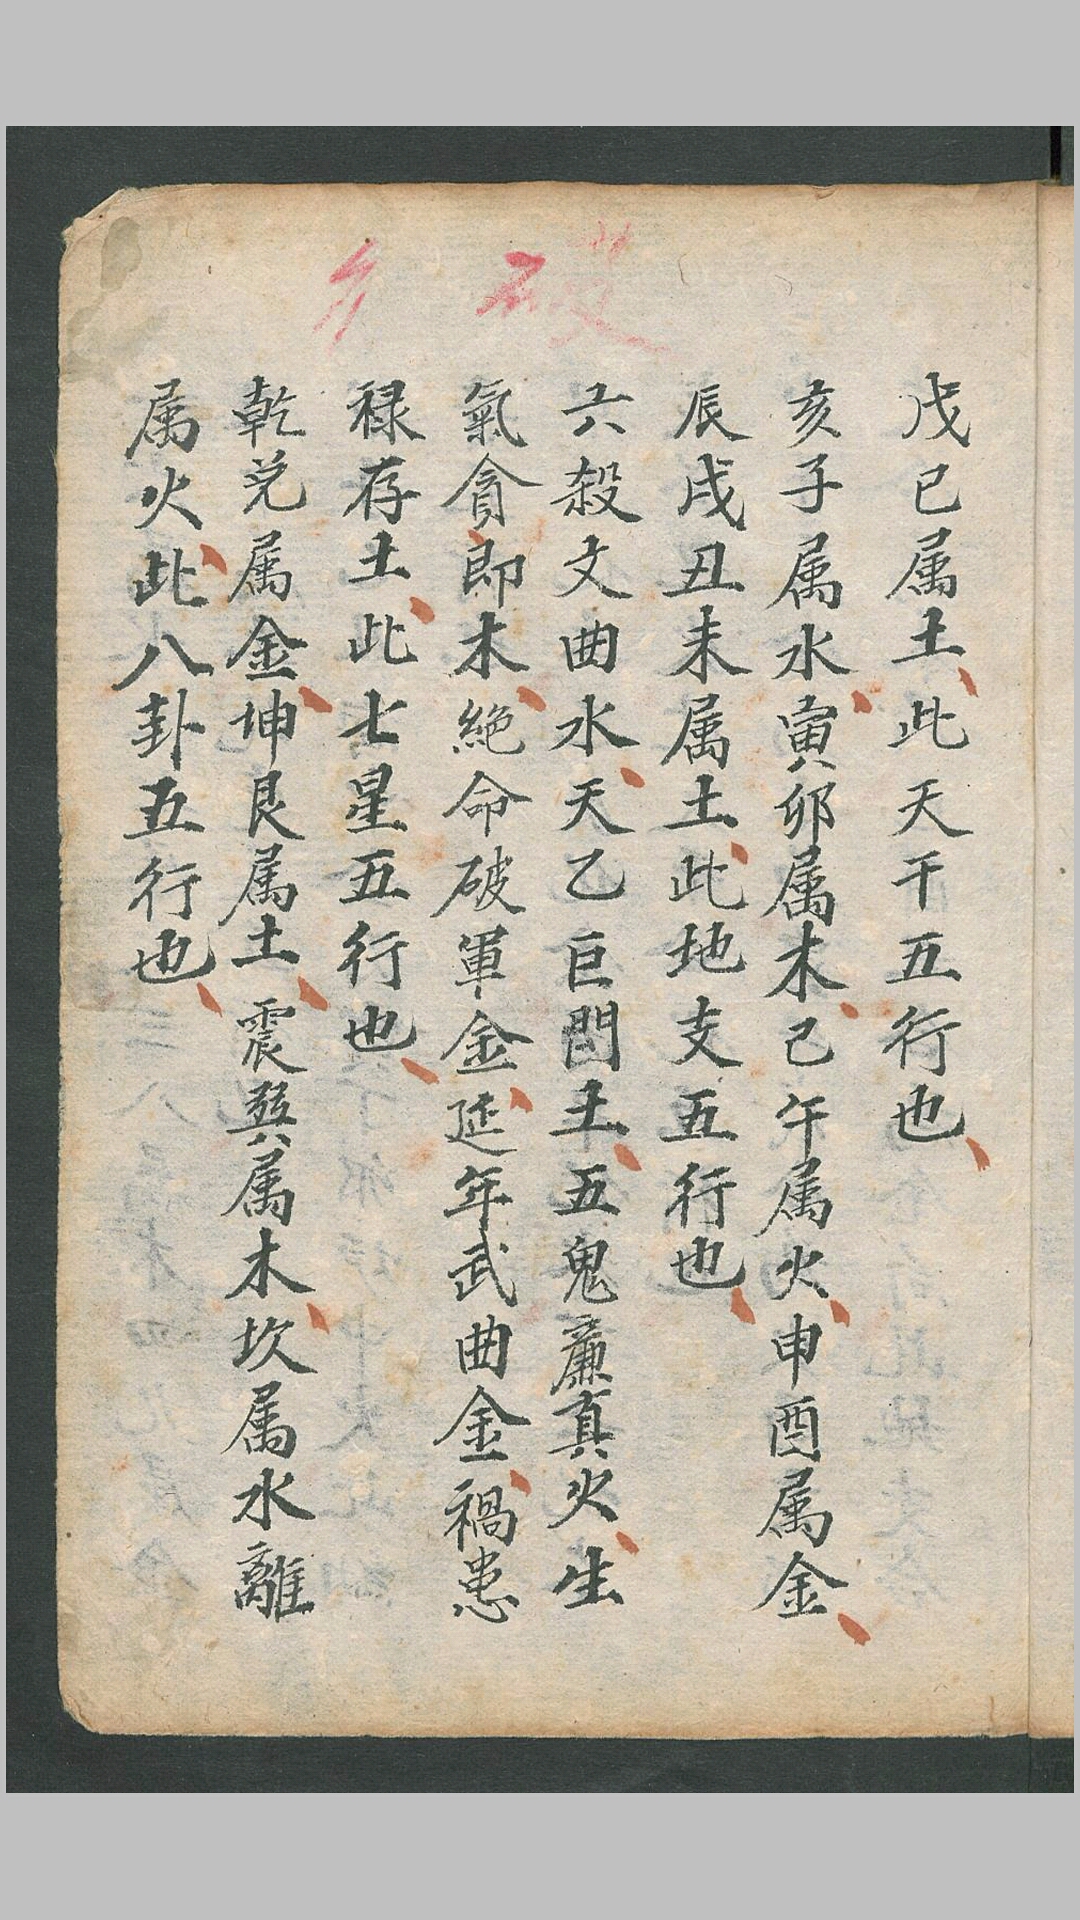 破
戊己属土此天干五行也
亥子属水寅卯属木己午属火申酉属金
辰戌丑未属土此地支五行也
六殺文曲水天乙巨門土五鬼廉真火生
氣貪即木絶命破軍金延年武曲金禍患
禄存土此七星五行也
乾兌属金坤艮属土震巽属木坎属水離
属火此八卦五行也